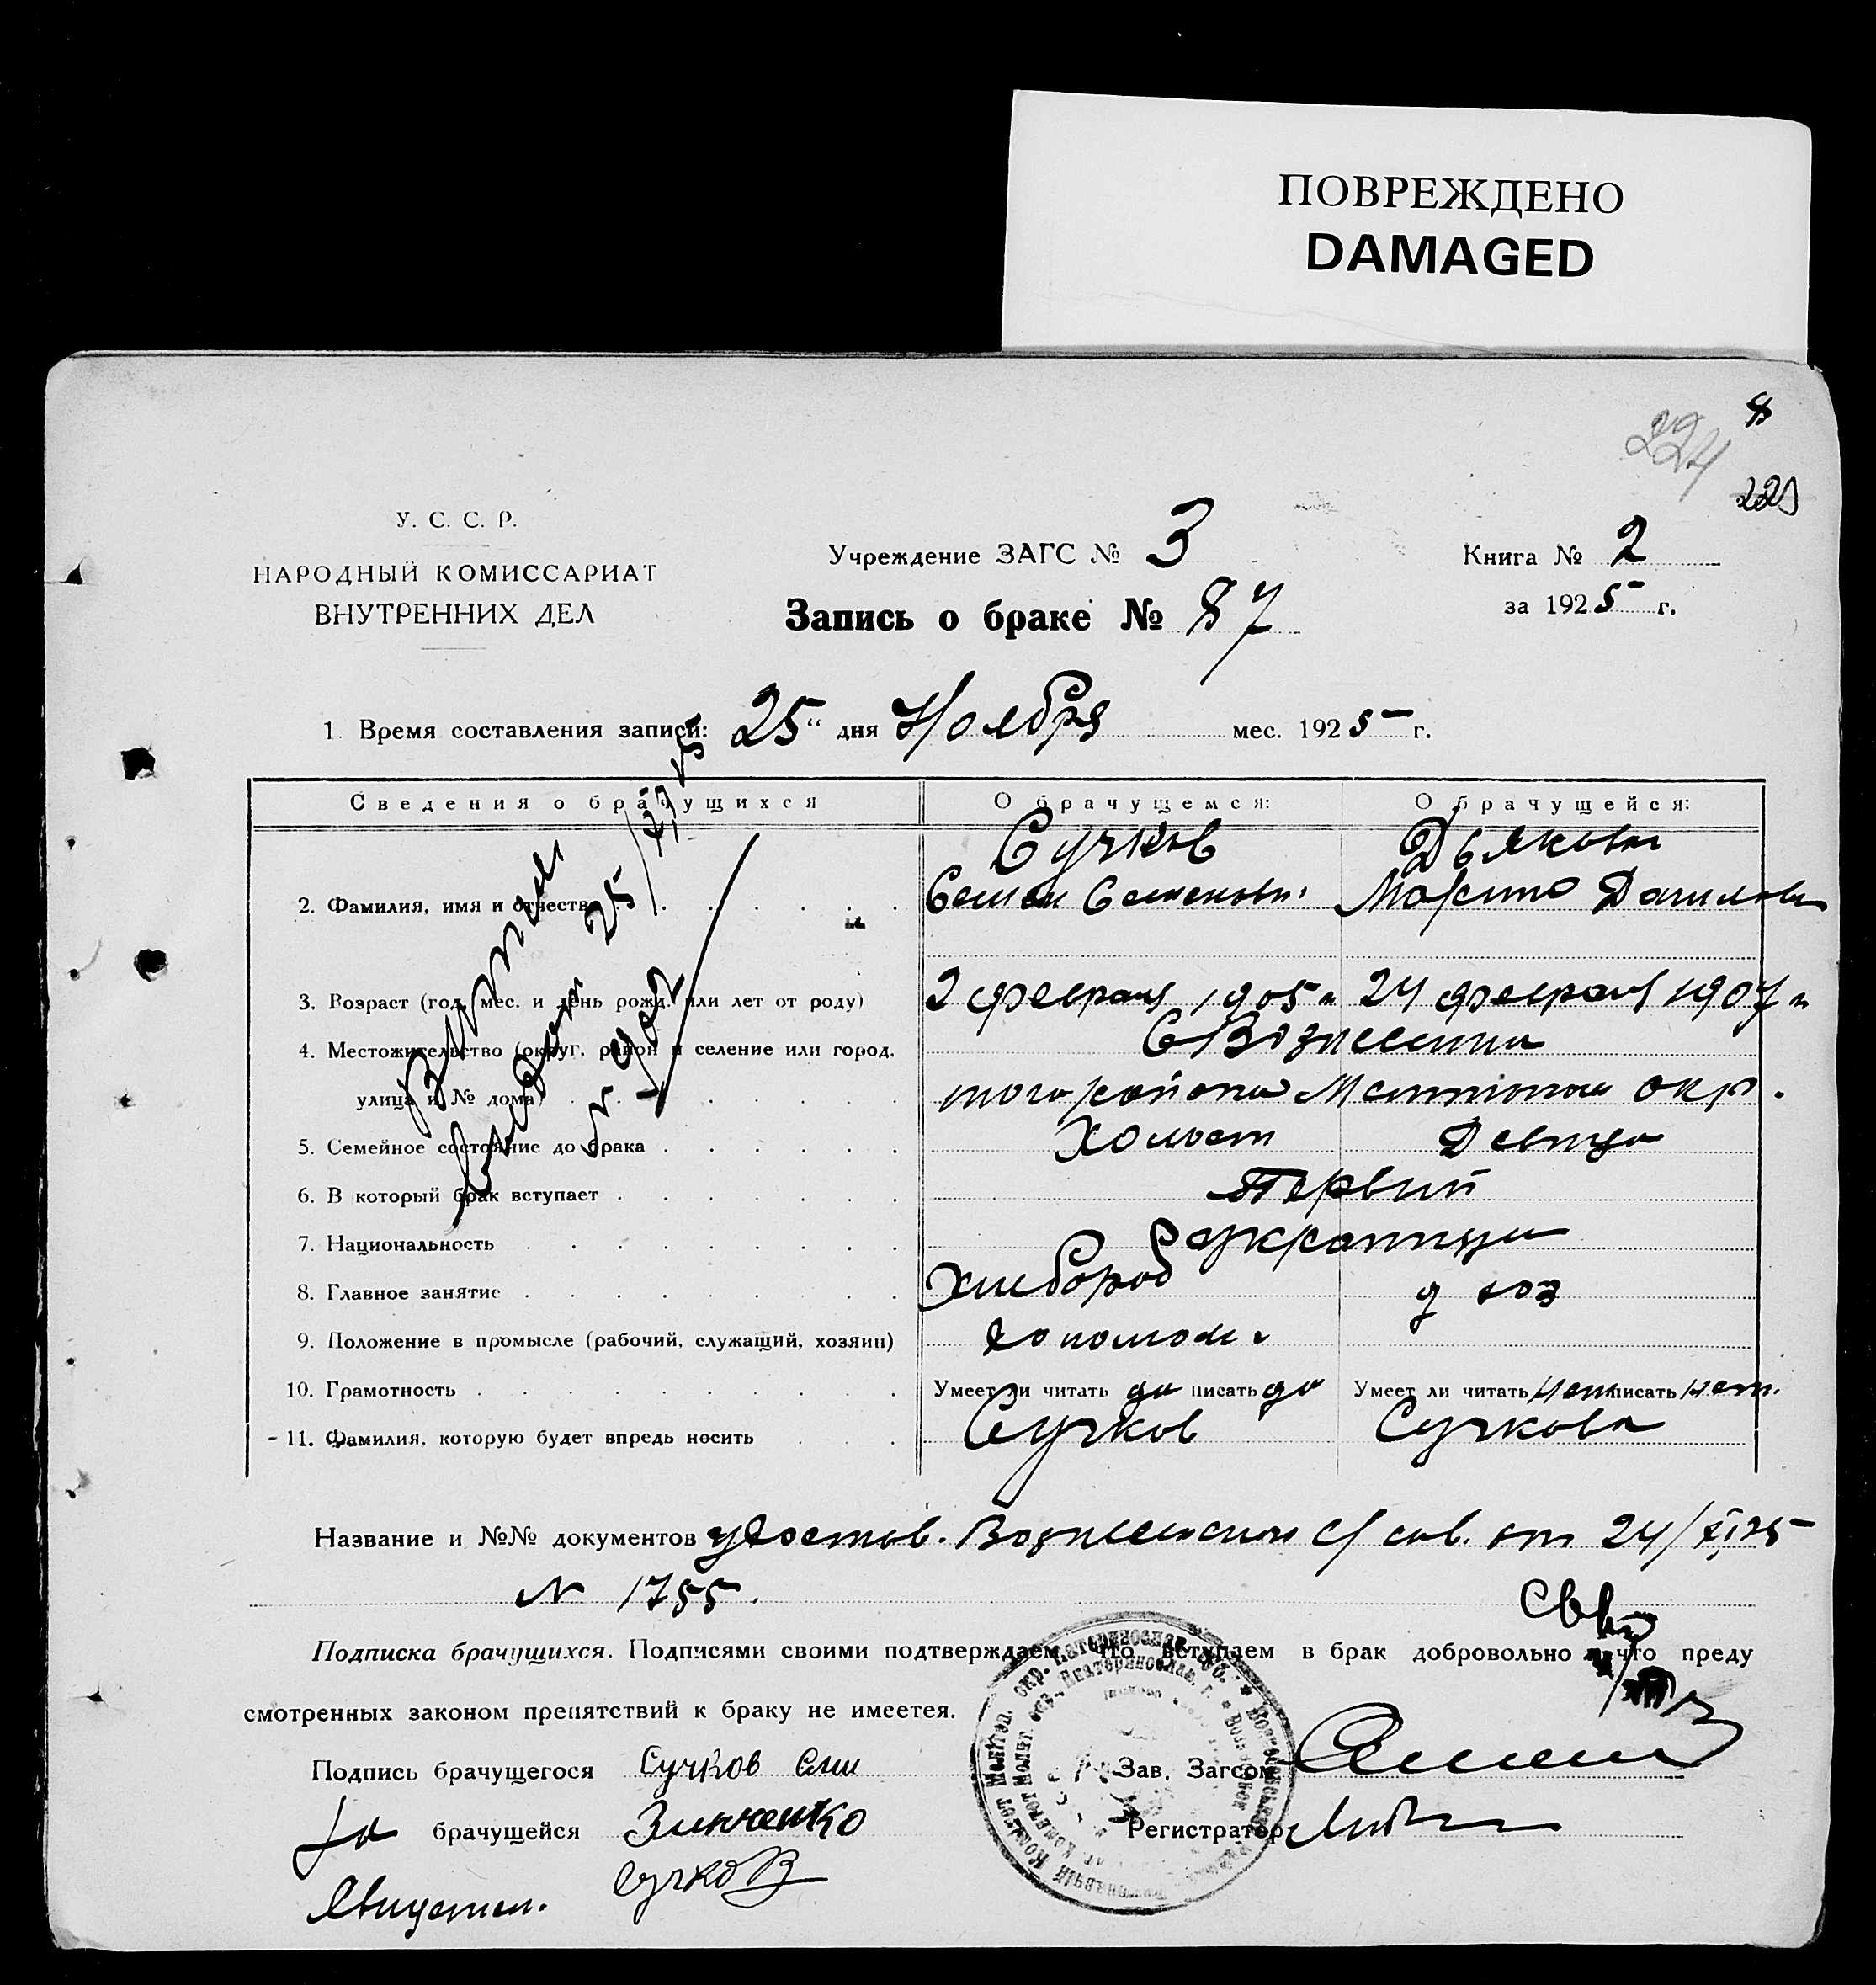 ПОВРЕЖДЕНО
DAMAGED
8
224
У. С. С. Р.
НАРОДНЫЙ КОМИССАРИАТ
ВНУТРЕННИХ ДЕЛ
Учреждение ЗАГС № 3
Запись о браке № 87
Книга № 2
за 1925 г.
1. Время составления записи: 25 " дня Ноября мес. 1925 г.
Сведения о брачущихся О брачущемся: О брачущейся:
Сучков Дьякова
2. Фамилия, имя и отчество Семен Семенови. Марина Данилова
3. Возраст (год, мес. и день рожд. или лет от роду) 2 февраля 1905 24 февраля 1907
4. Местожительство (округ, район и селение или город, С Вознесенка
улица и № дома) того района окр.
5. Семейное состояние до брака Холост Девица
6. В который брак вступает Первый
7. Национальность украинцы
8. Главное занятие Хлебороб д хоз
9. Положение в промысле (рабочий, служащий, хозяин)
10. Грамотность Умеет ли читать да писать да Умеет ли читать нет писать нет.
11. Фамилия, которую будет впредь носить Сучков Сучкова
Название и №№ документов удостов. Вознесенскому с/ сов. от 24/XI 25
N 1755.
Подписка брачущихся. Подписями своими подтверждаем, что вступаем в брак добровольно и что преду
смотренных законом препятствий к браку не имеетея.
Подпись брачущегося Сучков Сем
Зав. Загсом
за брачущейся Зинченко
Регистратор
Свидетел. Сучков